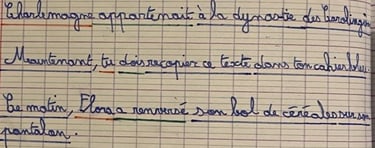 Charlemagne appartenait à la dynastie des Carolingiens
Maintenant, tu dois recopier ce texte dans ton cahier bleu.
Ce matin, Elora a renversé son bol de céréales sur son
pantalon.